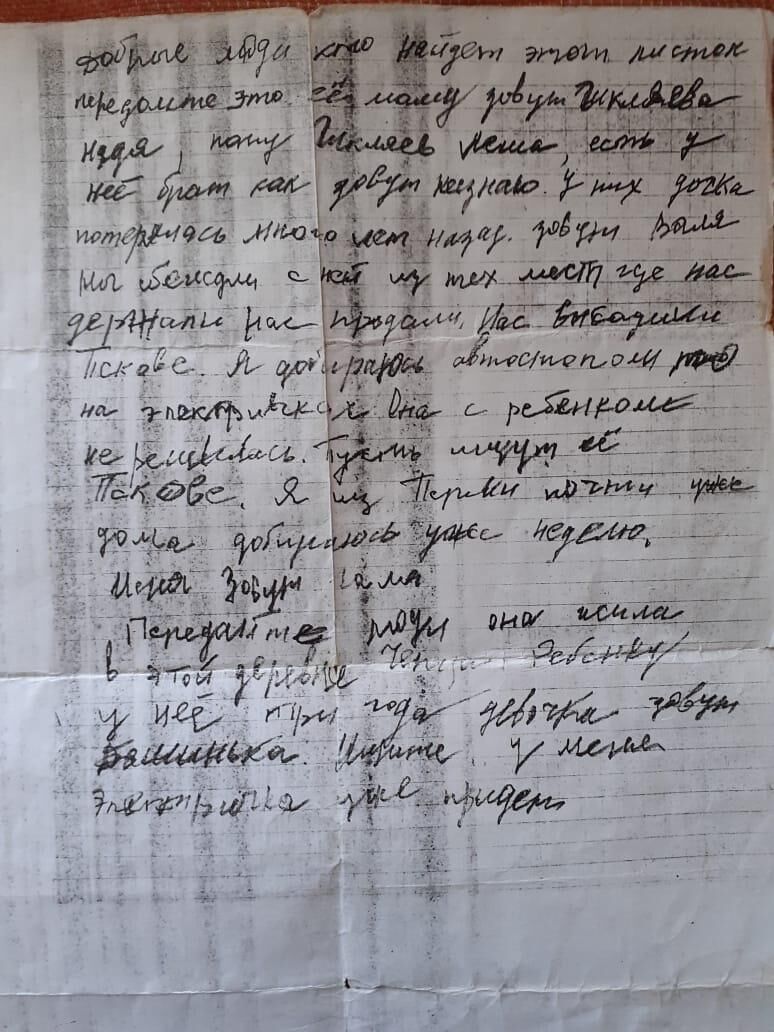 Добрые люди кто найдет этот листок
передайте это её маму зовут Шкляева
Надя, папу Шкляев Леша, есть у
неё брат как зовут незнаю. У них дочка
потерялась много лет назад. зовут Валя
Мы бежали с ней из тех мест где нас
держали нас продали. Нас
Пскове. Я добираюсь автостопом
на электричках Она с ребенком
не решилась. Пусть ищут её
Пскове. Я из Перми почти уже
дома добираюсь уже неделю.
Меня зовут
Передайте люди она жила
в этой деревне Ребенку
у неё три года девочка зовут
Ищите у меня
Электричка уже придет